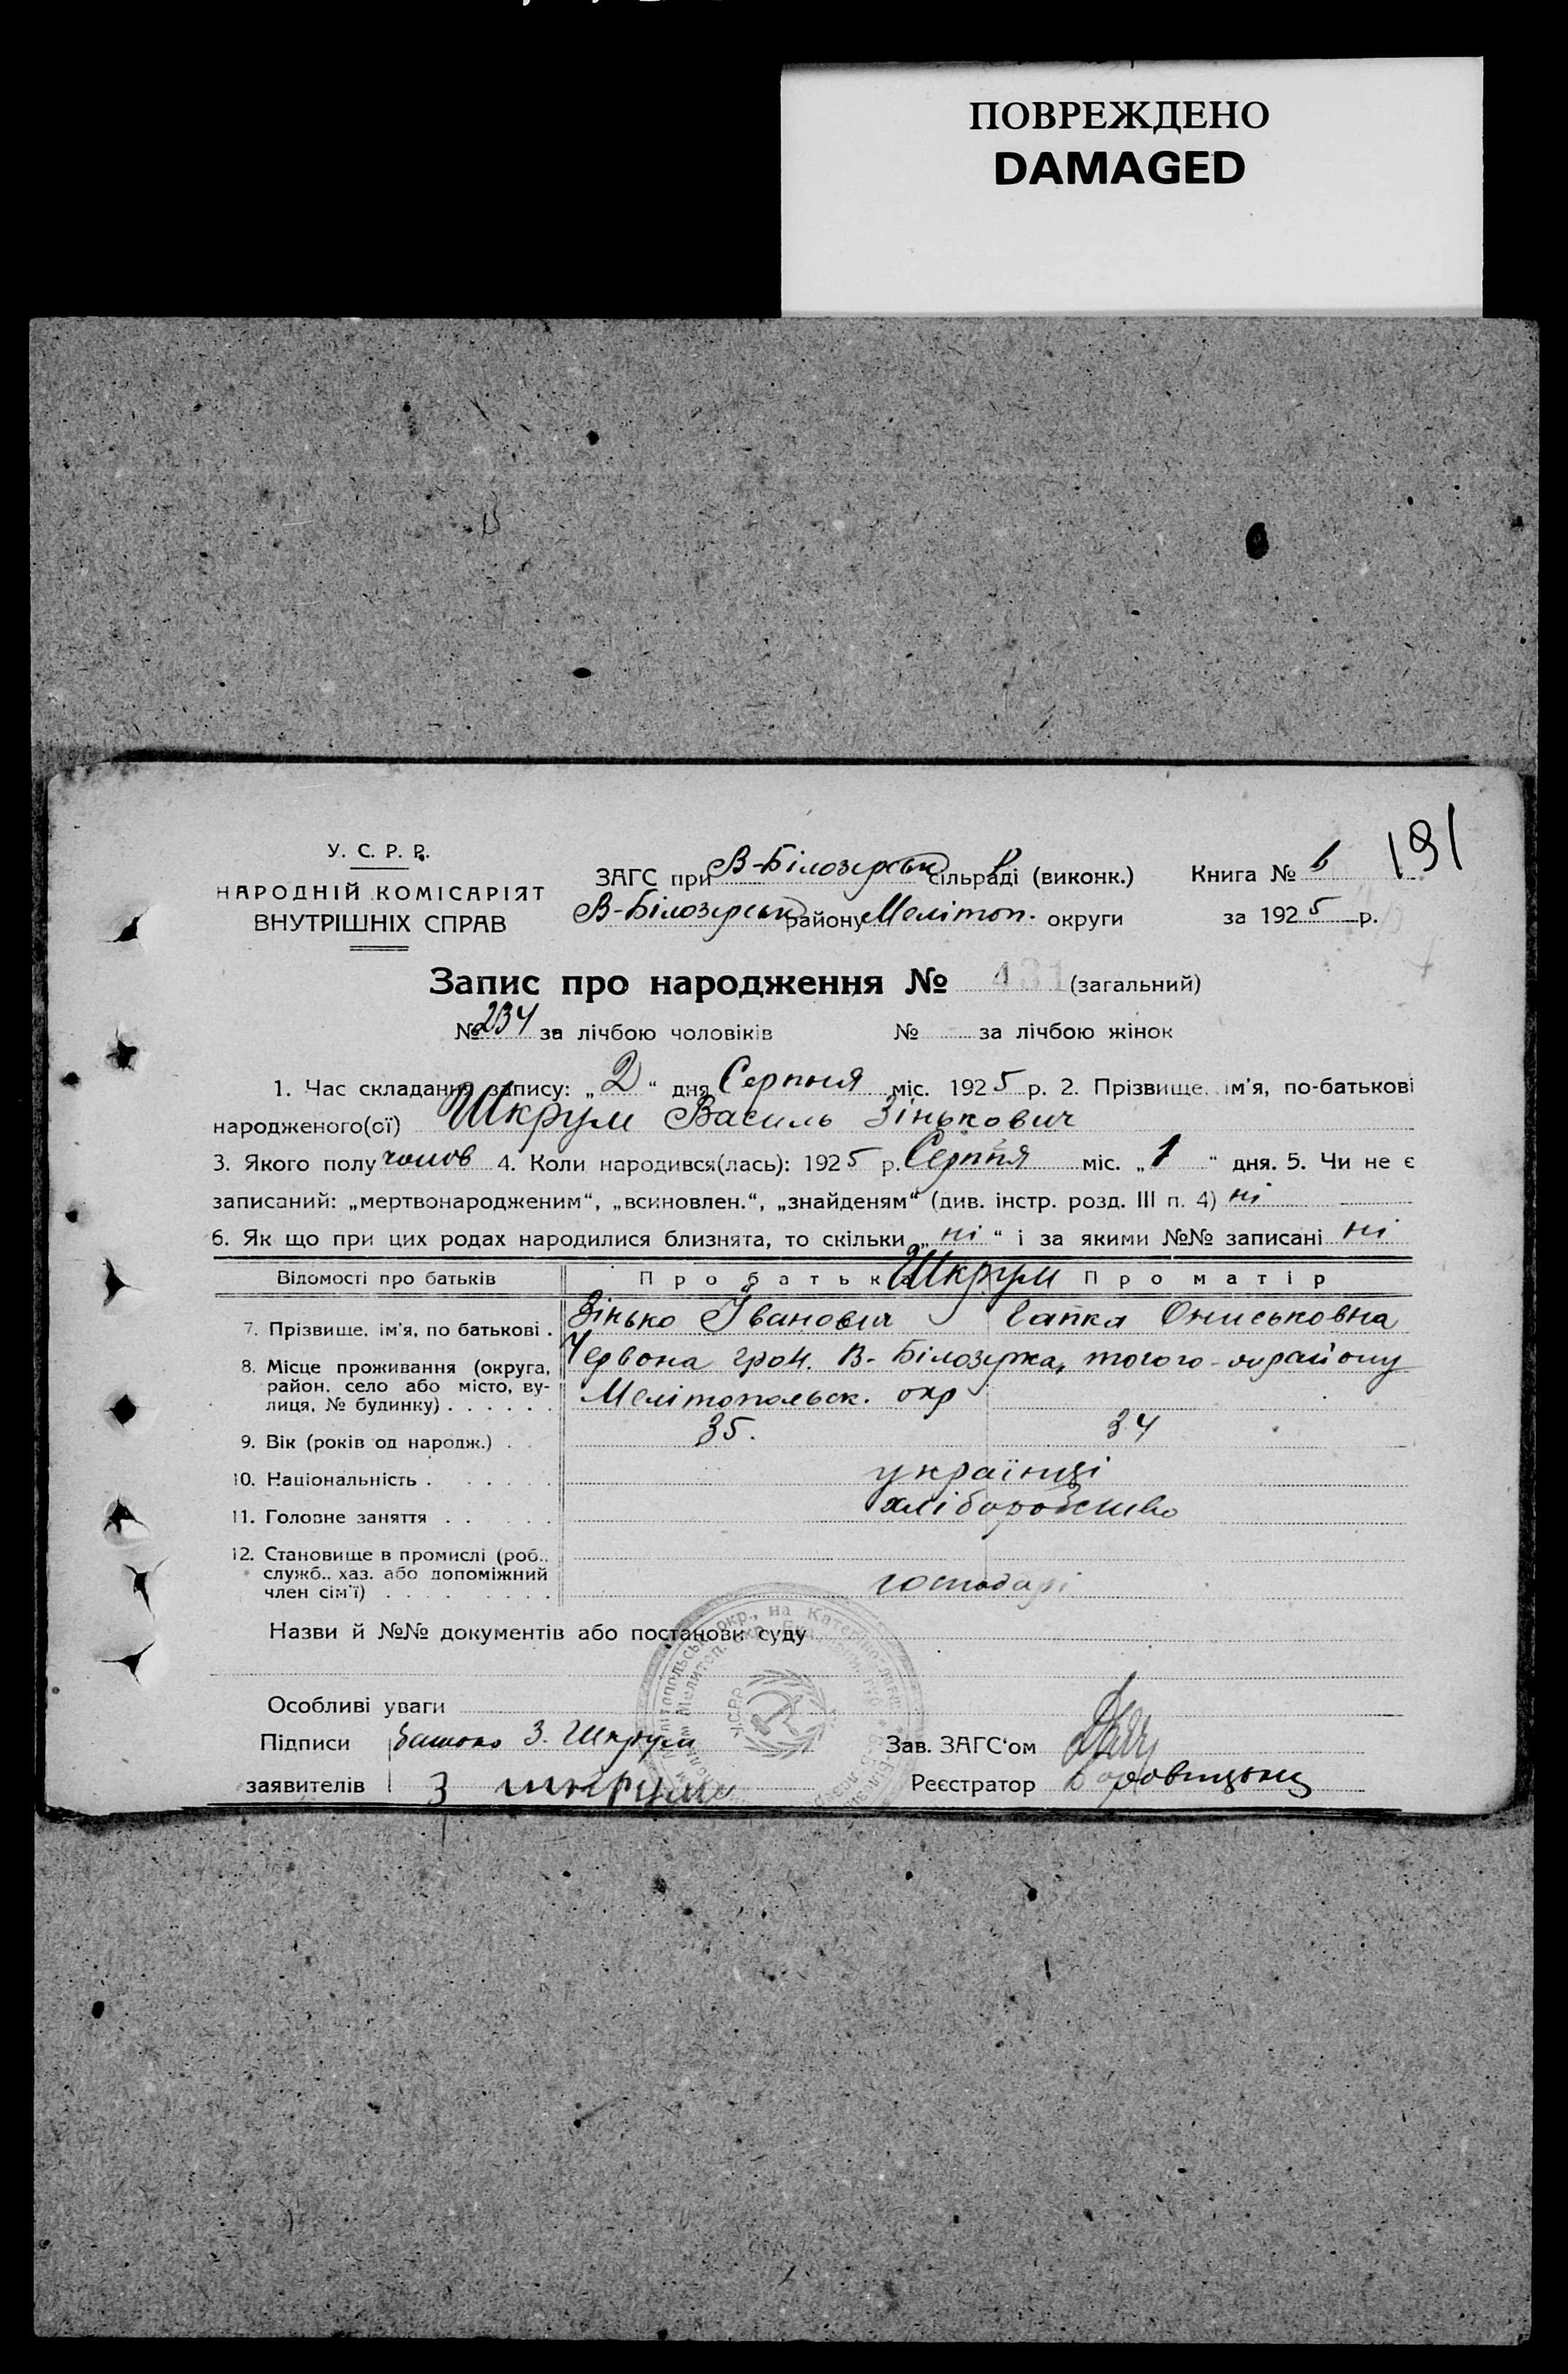 ПОВРЕЖДЕНО
DAMAGED
191
У. С. Р. Р.
НАРОДНІЙ КОМІСАРІЯТ
ВНУТРІШНІХ СПРАВ
ЗАГС при В-Білозерськ сільраді (виконк.)
В-Білозерськ району Меліт оп. округи
Книга № 6
за 1925 р.
Запис про народження № 431 (загальний)
№ 234 за лічбою чоловіків № - за лічбою жінок
1. Час складання запису: „2“ дня Серпня міс. 1925 р. 2. Прізвище, ім'я, по-батькові
народженого(ої) Шкрум Василь Зінькович
3. Якого полу чолов 4. Коли народився(лась): 1925 р. Серпня міс. „1“ дня. 5. Чи не є
записаний: „мертвонародженим“, „всиновлен.“, „знайденям“ (див. інстр. розд. III п. 4) ні
6. Як що при цих родах народилися близнята, то скільки „ні“ і за якими №№ записані ні
Відомості про батьків Про батька Шкрум Про матір
7. Прізвище, ім'я, по батькові . Зінько Іванович Гапка Ониськовна
8. Місце проживання (округа, Червона гром. В-Білозерка, того-ж району
район, село або місто, ву-
лиця, № будинку) . . . . . . Мелітопольськ. окр
9. Вік (років од народж.) . . 35. 34
10. Національність . . . . . . українці
11. Головне заняття . . . . . хліборобство
12. Становище в промислі (роб.,
служб., хаз. або допоміжний
член сім'ї) . . . . . . . . господарі
Назви й №№ документів або постанови суду
Особливі уваги
Підписи Батько З. Шкрум Зав. ЗАГС'ом
заявителів З шкрум Реєстратор